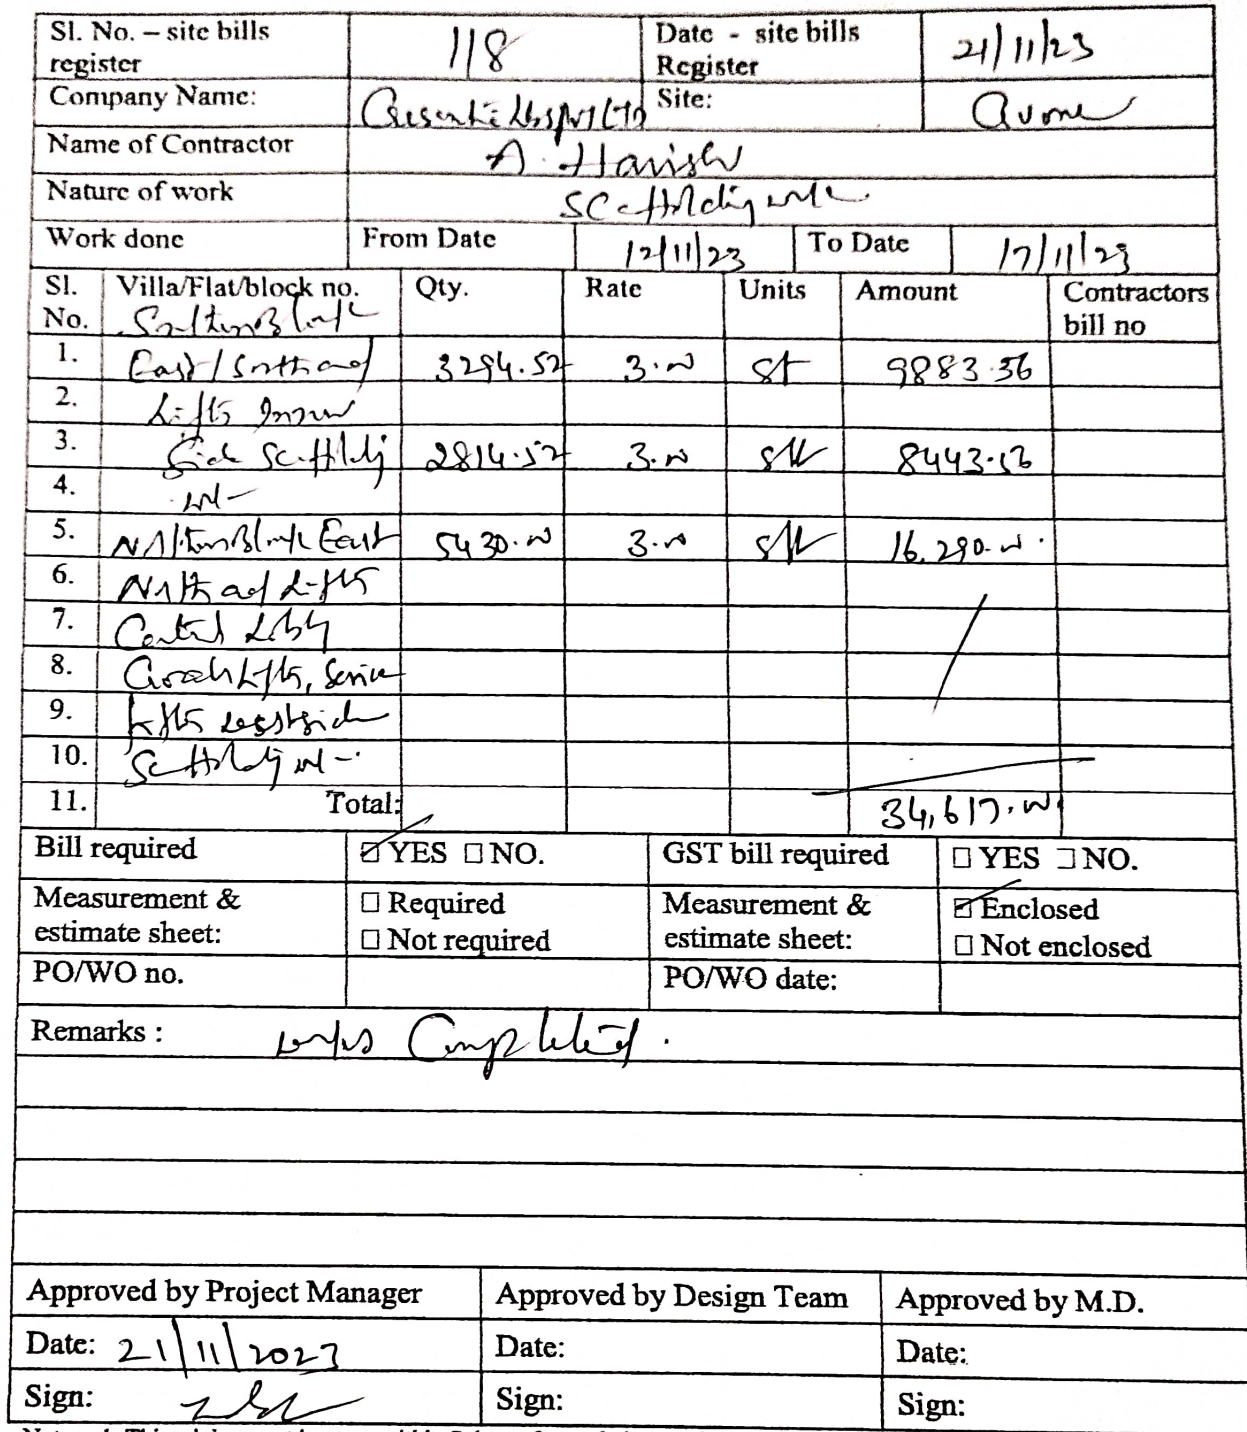 Sl. No. – site bills register 118 Date - site bills Register 21/11/23
Company Name: Site:
Name of Contractor A. Harish
Nature of work Scaffolding work
Work done From Date 12/11/23 To Date 17/11/23
Sl. No. Villa/Flat/block no. Qty. Rate Units Amount Contractors bill no
1. East/South and 3294.52 3.00 sft 9883.56
2. Lifts Inner
3. Side Scaffolding 2814.52 3.00 sft 8443.56
4.
5. East 5430.00 3.00 sft 16,290.00
6. North and Lifts
7. Central Lobby
8. Lifts, Service
9. Lifts westside
10. Scaffolding
11. Total: 34,617.00
Bill required ☑ YES ☐ NO. GST bill required ☐ YES ☐ NO.
Measurement & estimate sheet: ☐ Required ☐ Not required Measurement & estimate sheet: ☑ Enclosed ☐ Not enclosed
PO/WO no. PO/WO date:
Remarks : Completed.
Approved by Project Manager Approved by Design Team Approved by M.D.
Date: 21/11/2023 Date: Date:
Sign: Sign: Sign: